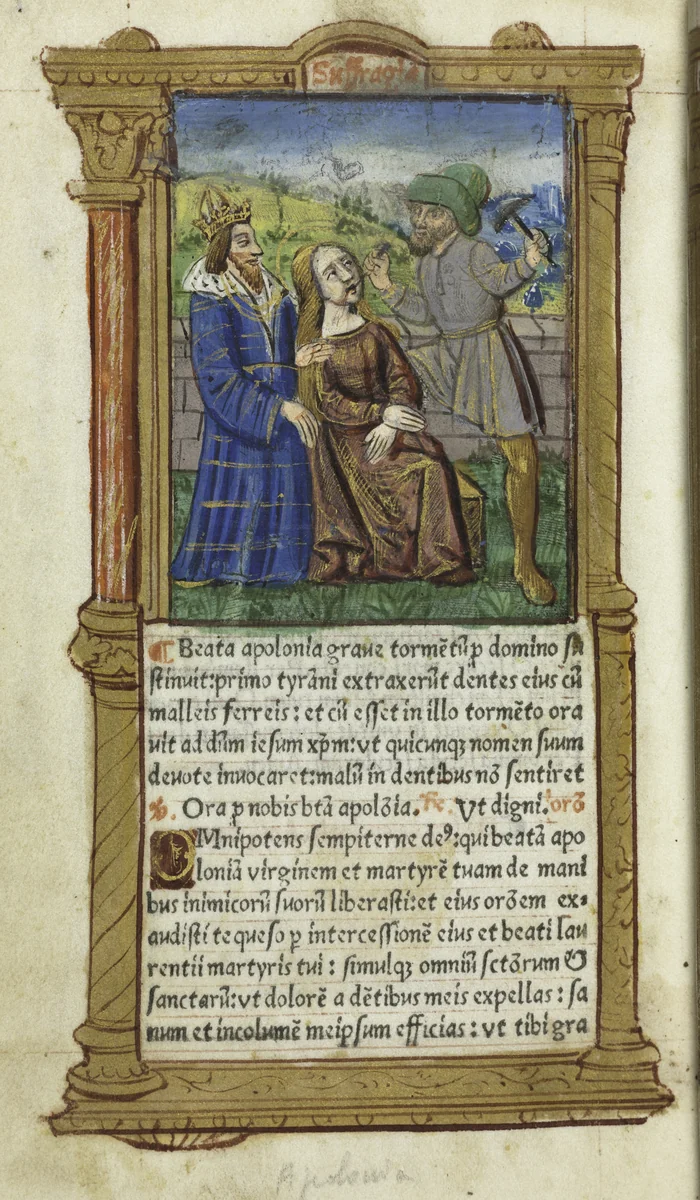 Suffragia
¶ Beata apolonia graue tormētū ꝑ domino ſu
ſtinuit: primo tyrāni extraxerūt dentes eius cū
malleis ferreis: et cū eſſet in illo tormēto ora
uit ad dūm ieſum xp̄m: vt quicunqꝫ nomen ſuum
deuote inuocaret: malū in dentibus nō ſentiret
℣. Ora ꝓ nobis btā apolōia. ℟. Vt digni. orō
OMnipotens ſempiterne deꝰ: qui beatā apo
loniā virginem et martyrē tuam de mani
bus inimicorū ſuorū liberaſti: et eius orōem ex⸗
audiſti te queſo ꝑ interceſſionē eius et beati lau
rentii martyris tui: ſimulqꝫ omniū ſctōrum &
ſanctarū: vt dolorē a dētibus meis expellas: ſa
num et incolumē meipſum efficias: vt tibi gra
Apolonia